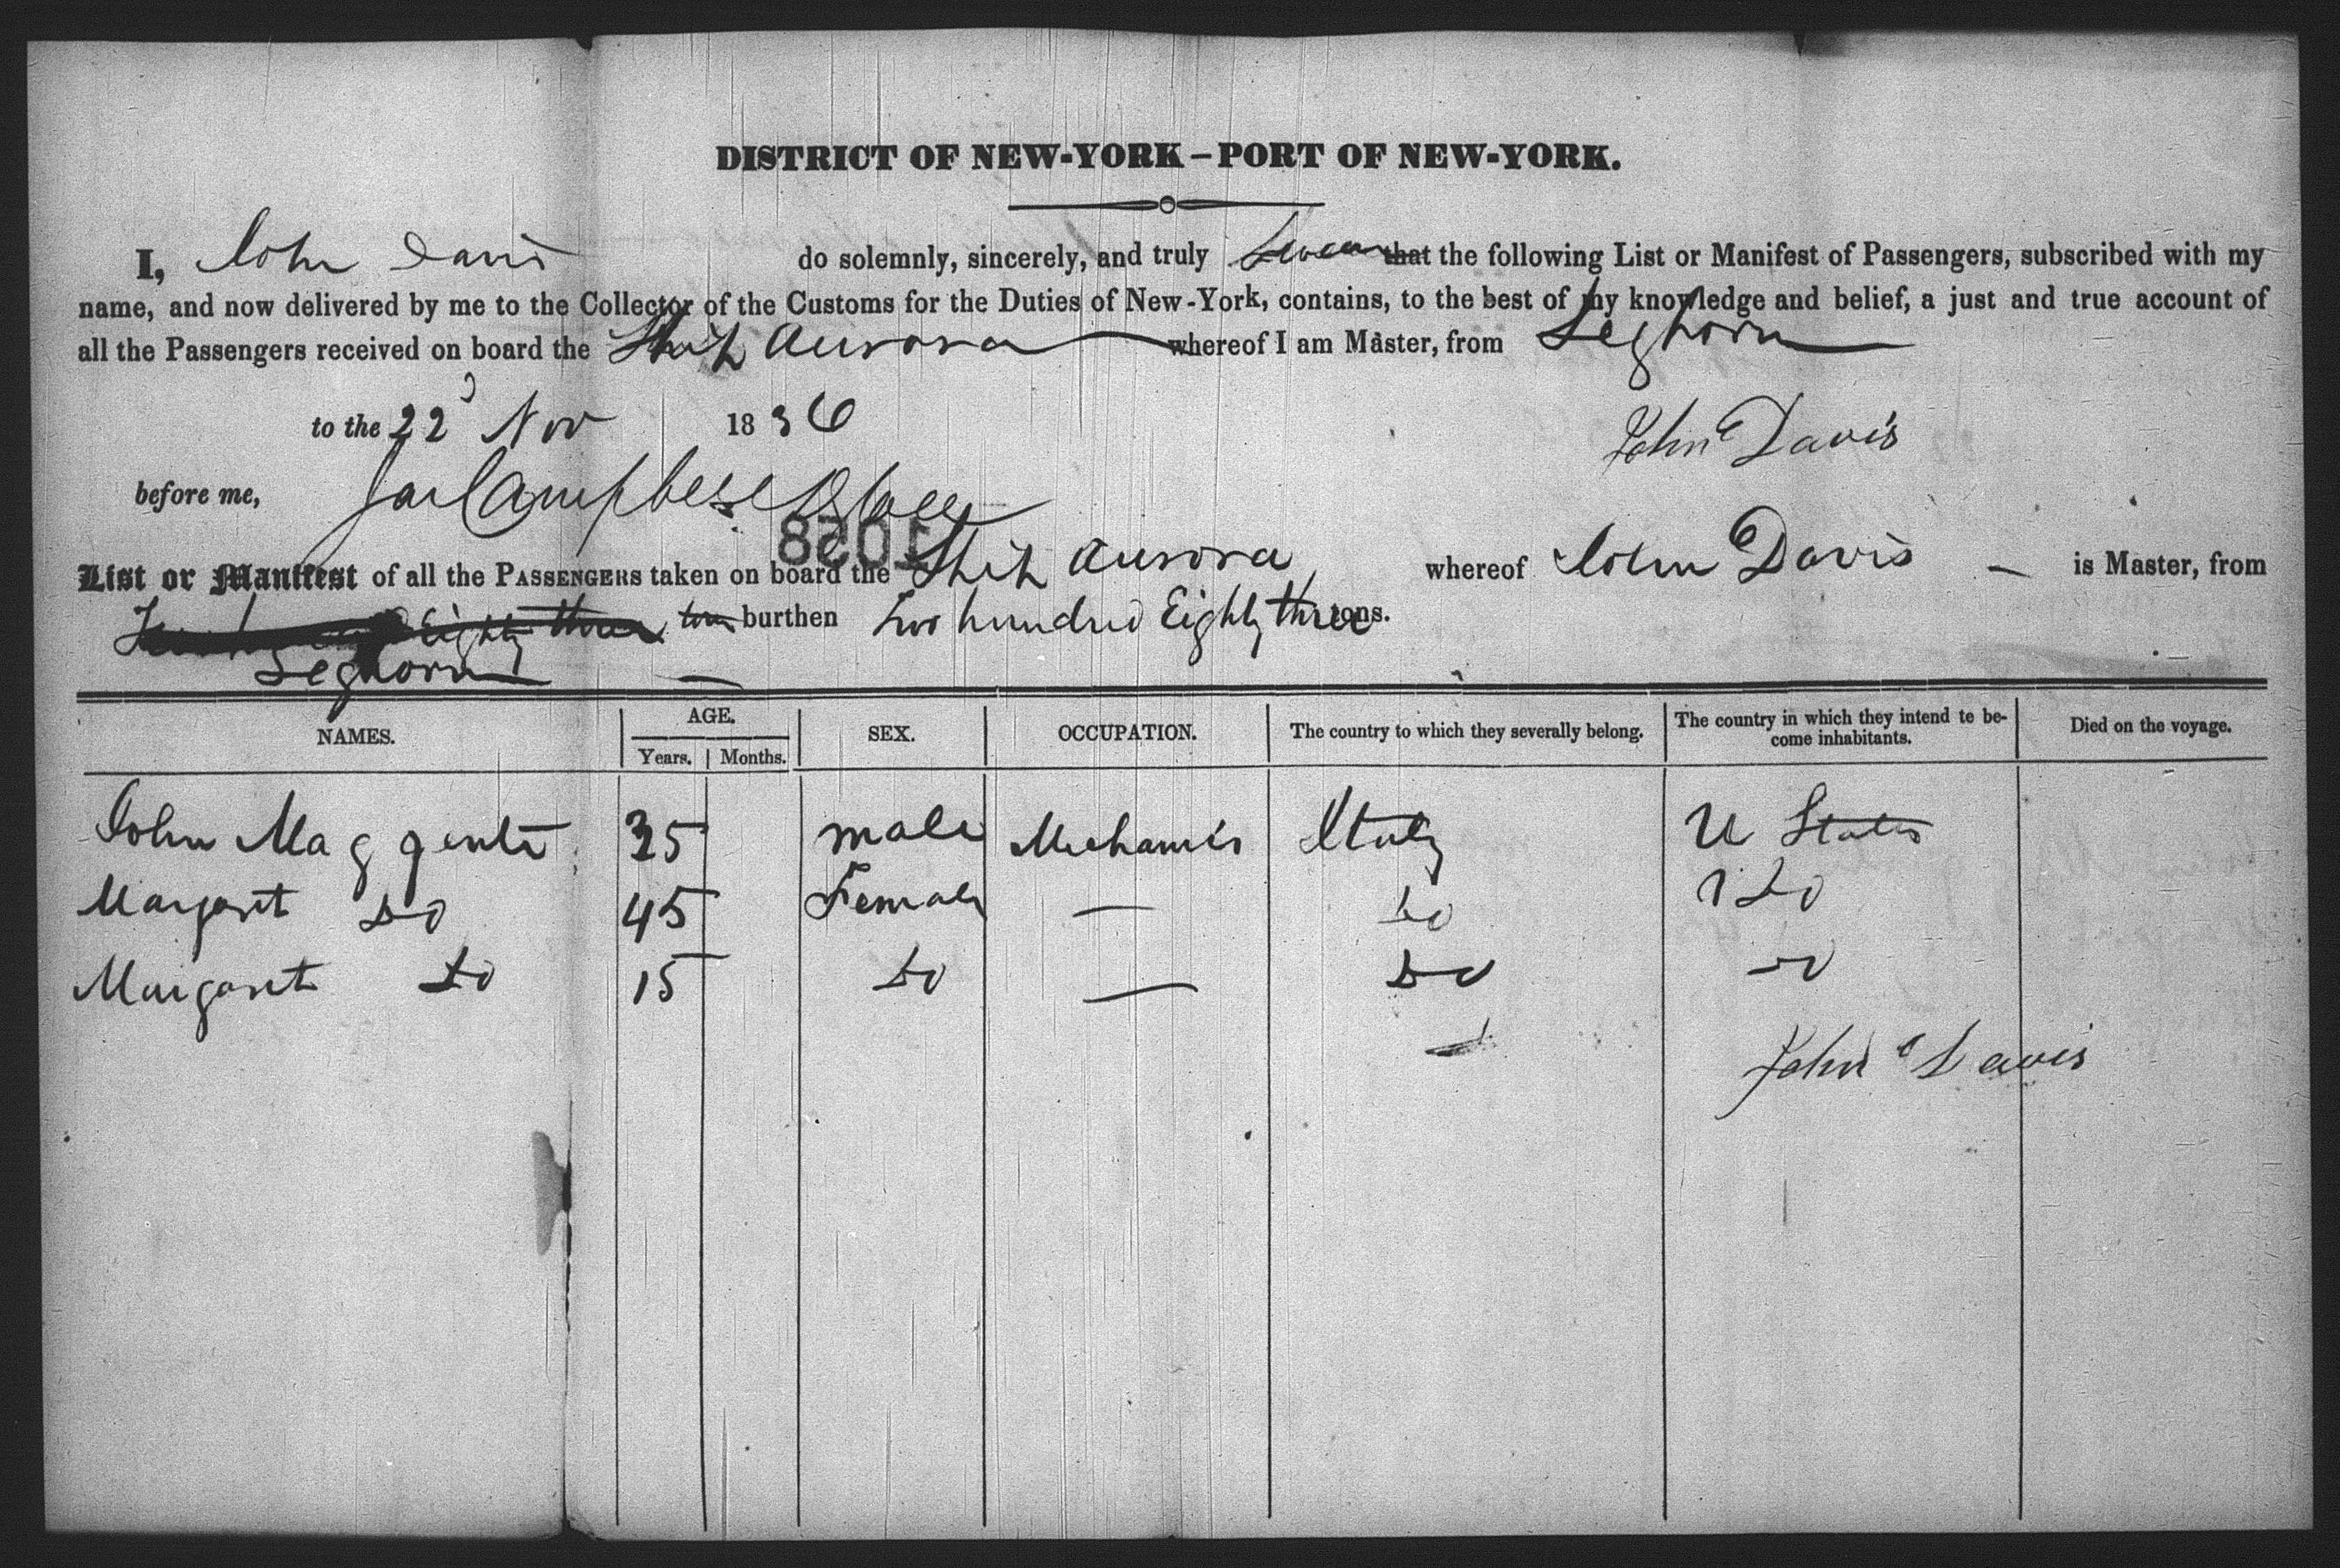 DISTRICT OF NEW-YORK – PORT OF NEW-YORK.
I, John Davis do solemnly, sincerely, and truly Swear that the following List or Manifest of Passengers, subscribed with my
name, and now delivered by me to the Collector of the Customs for the Duties of New-York, contains, to the best of my knowledge and belief, a just and true account of
all the Passengers received on board the Ship Aurora whereof I am Master, from Leghorn
to the 22d Nov 1836
John Davis
before me, Jas Campbell D Coll
1058
List or Manifest of all the PASSENGERS taken on board the Ship Aurora whereof John Davis is Master, from
Eighty three ton burthen Two hundred Eighty three tons.
Leghorn
NAMES. AGE. SEX. OCCUPATION. The country to which they severally belong. The country in which they intend te be-
come inhabitants. Died on the voyage.
Years. Months.
John Maggenti 35 male Mechanic Italy U States
Margaret Do 45 Female — Do Do
Margaret Do 15 Do — Do Do
John Davis